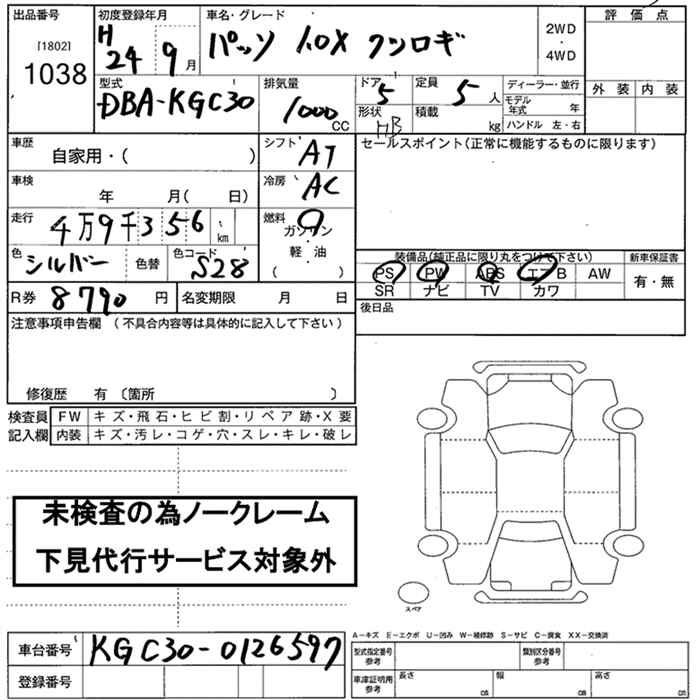 出品番号 初度登録年月 車名・グレード 評価点
[1802] H 24 9月 パッソ 1.0X クツロギ 2WD ・ 4WD
1038 型式 排気量 ドア 定員 ディーラー・並行 外装 内装
DBA-KGC30 1000 CC 5 5 人 モデル年式 年
形状 HB 積載 kg ハンドル 左・右
車歴 自家用・( ) シフト AT セールスポイント(正常に機能するものに限ります)
車検 年 月( 日) 冷房 AC
走行 4万9千356 km 燃料 ガソリン ・ 軽・油 ( )
色 シルバー 色替 色コード S28 装備品(純正品に限り丸をつけて下さい) 新車保証書
PS PW ABS エアB AW 有・無
R券 8790 円 名変期限 月 日 SR ナビ TV カワ
注意事項申告欄 (不具合内容等は具体的に記入して下さい) 後日品
修復歴 有 〔箇所 〕
検査員 FW キズ・飛石・ヒビ割・リペア跡・X要
記入欄 内装 キズ・汚レ・コゲ・穴・スレ・キレ・破レ
未検査の為ノークレーム
下見代行サービス対象外
スペア
A-キズ E-エクボ U-凹み W-補修跡 S-サビ C-腐食 XX-交換済
車台番号 KGC30-0126597 型式指定番号 参考 類別区分番号 参考
登録番号 車庫証明用 参考 長さ cm 幅 cm 高さ cm